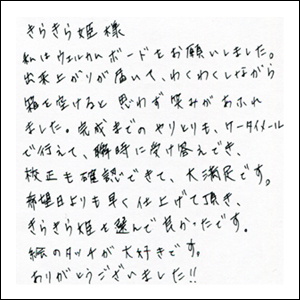 きらきら姫様
私はウェルカムボードをお願いしました。
出来上がりが届いて、わくわくしながら
箱を空けると思わず笑みがあふれ
ました。完成までのやりとりも、ケータイメール
で行えて、瞬時に受け答えでき、
校正も確認できて、大満足です。
希望日よりも早く仕上げて頂き、
きらきら姫を選んで良かったです。
絵のタッチが大好きです。
ありがとうございました!!